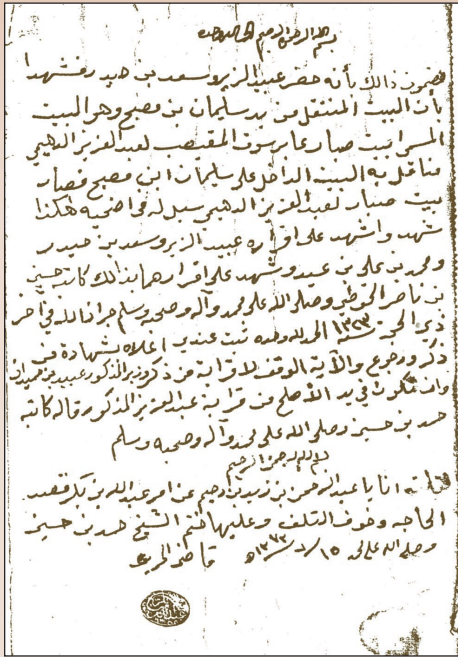 بسم الله الرحمن الرحيم الحمد لله وحده
مضمون ذالك بأنه حضر عبيد الزير وسعد بن حيدر فشهدا
بأن البيت المنتقل من يد سليمان بن مصبح وهو البيت
المسمى بيت صبار عابر سوق المقيصب لعبد العزيز الدهيمي
فناقل به البيت الداخل على سليمان ابن مصبح فصار
بيت صبار لعبد العزيز الدهيمي سبل له في اضحيه هكذا
شهد واشهد على اقراره عبيد الزير وسعد بن حيدر
ومحمد بن علي بن عبيد وشهد على اقرارهما بذالك كاتبه حسين
بن ناصر وصلى الله على محمد وآله وصحبه وسلم جرا ذالك في اخر
ذي الحجة سنة ١٣٢٣ الحمد لله وحده ثبت عندي اعلاه بشهادة من
ذكر ورجوع الوقف لاقرابة من ذكر المذكور عبيد بن
وان تكون في يد الأصلح من قرابة عبد العزيز المذكور قاله كاتبه
حمد بن حسين وصلى الله على محمد وآله وصحبه وسلم
بسم الله الرحمن الرحيم
انا يا عبد الرحمن بن زيد بن عن امر عبد الله بن بكر قصد
الحاجه وخوف التلف وعليها ختم الشيخ حمد بن حسين
وصلى الله على محمد ١٥ قاضي